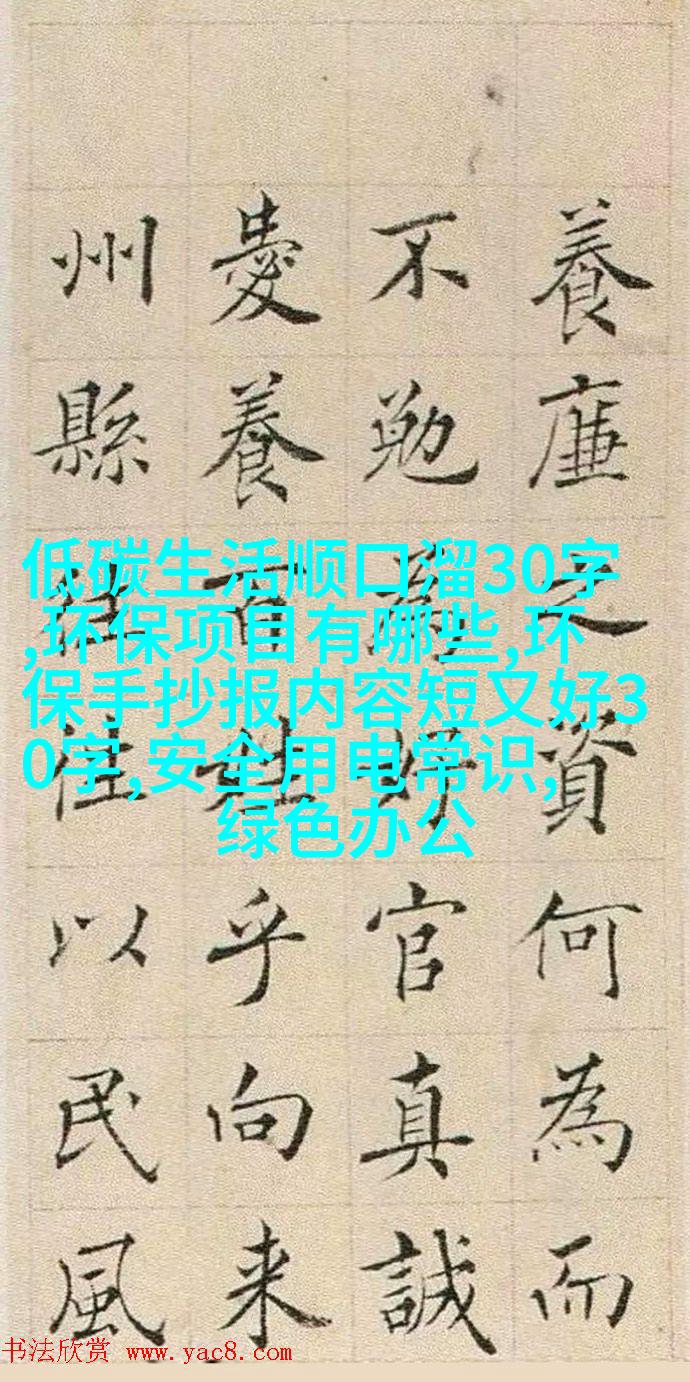 養廉之資何為而
不勉為好官真誠
愛養百姓乎向来
州縣往往以民風
低碳生活顺口溜30字
,环保项目有哪些,环
保手抄报内容短又好3
0字,安全用电常识,
绿色办公
书法欣赏 www.yac8.com